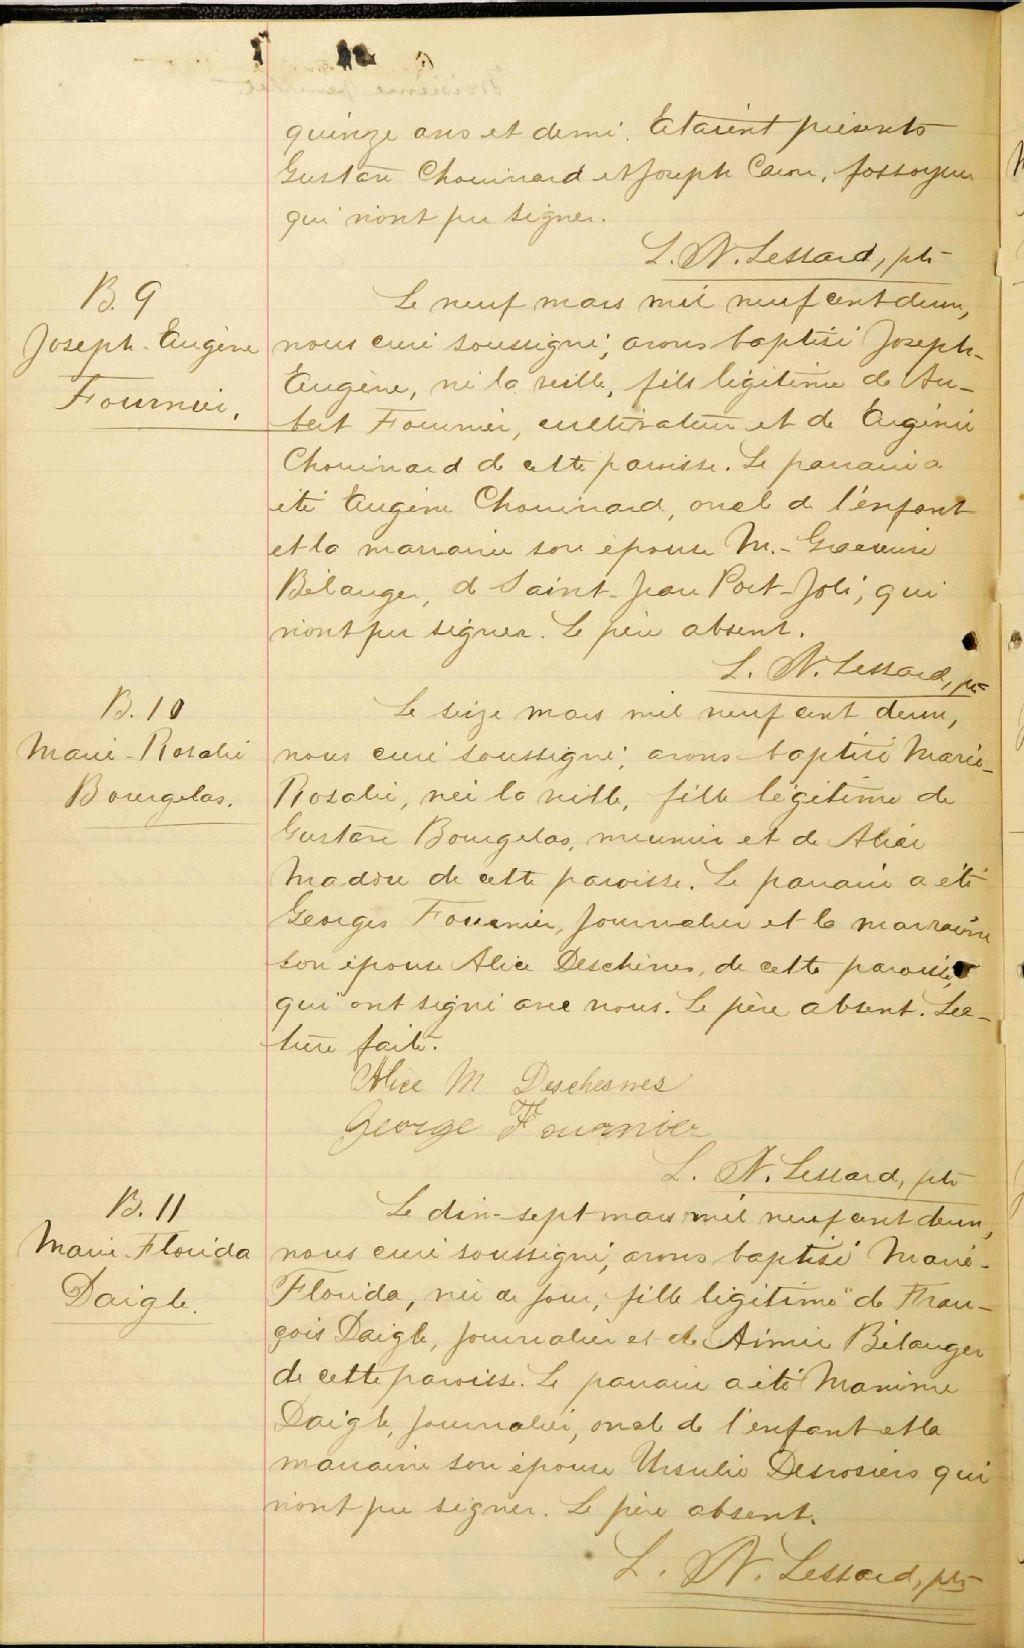 quinze ans et demi. Etaient présents
Gustave Chouinard et Joseph Caron, fossoyeur
qui n'ont pu signer.
L. N. Lessard, ptr
B. 9
Joseph-Eugène
Fournier.
Le neuf mars mil neuf cent deux,
nous curé soussigné, avons baptisé Joseph-
Eugène, né la veille, fils légitime de Au-
bert Fournier, cultivateur et de Eugénie
Chouinard de cette paroisse. Le parrain a
été Eugène Chouinard, oncle de l'enfant
et la marraine son épouse M.-
Bélanger, de Saint-Jean Port-Joli, qui
n'ont pu signer. Le père absent.
L. N. Lessard, ptr
B. 10
Marie-Rosalie
Bourgelas.
Le seize mars mil neuf cent deux,
nous curé soussigné, avons baptisé Marie-
Rosalie, née la veille, fille légitime de
Gustave Bourgelas, meunier et de Alice
Madore de cette paroisse. Le parrain a été
Georges Fournier, journalier et la marraine
son épouse Alice Deschènes, de cette paroisse,
qui ont signé avec nous. Le père absent. Lec-
ture faite.
Alice M Deschesnes
George Fournier
L. N. Lessard, ptr
B. 11
Marie-Florida
Daigle.
Le dix-sept mars mil neuf cent deux,
nous curé soussigné, avons baptisé Marie-
Florida, née ce jour, fille légitime de Fran-
çois Daigle, journalier et de Aimée Bélanger
de cette paroisse. Le parrain a été Maxime
Daigle, journalier, oncle de l'enfant et la
marraine son épouse Ursulie Desrosiers qui
n'ont pu signer. Le père absent.
L. N. Lessard, ptr